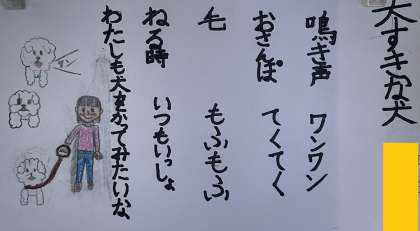 大すきな犬
鳴き声 ワンワン
おさんぽ てくてく
毛 もふもふ
ねる時 いつもいっしょ
わたしも犬をかってみたいな
ワン